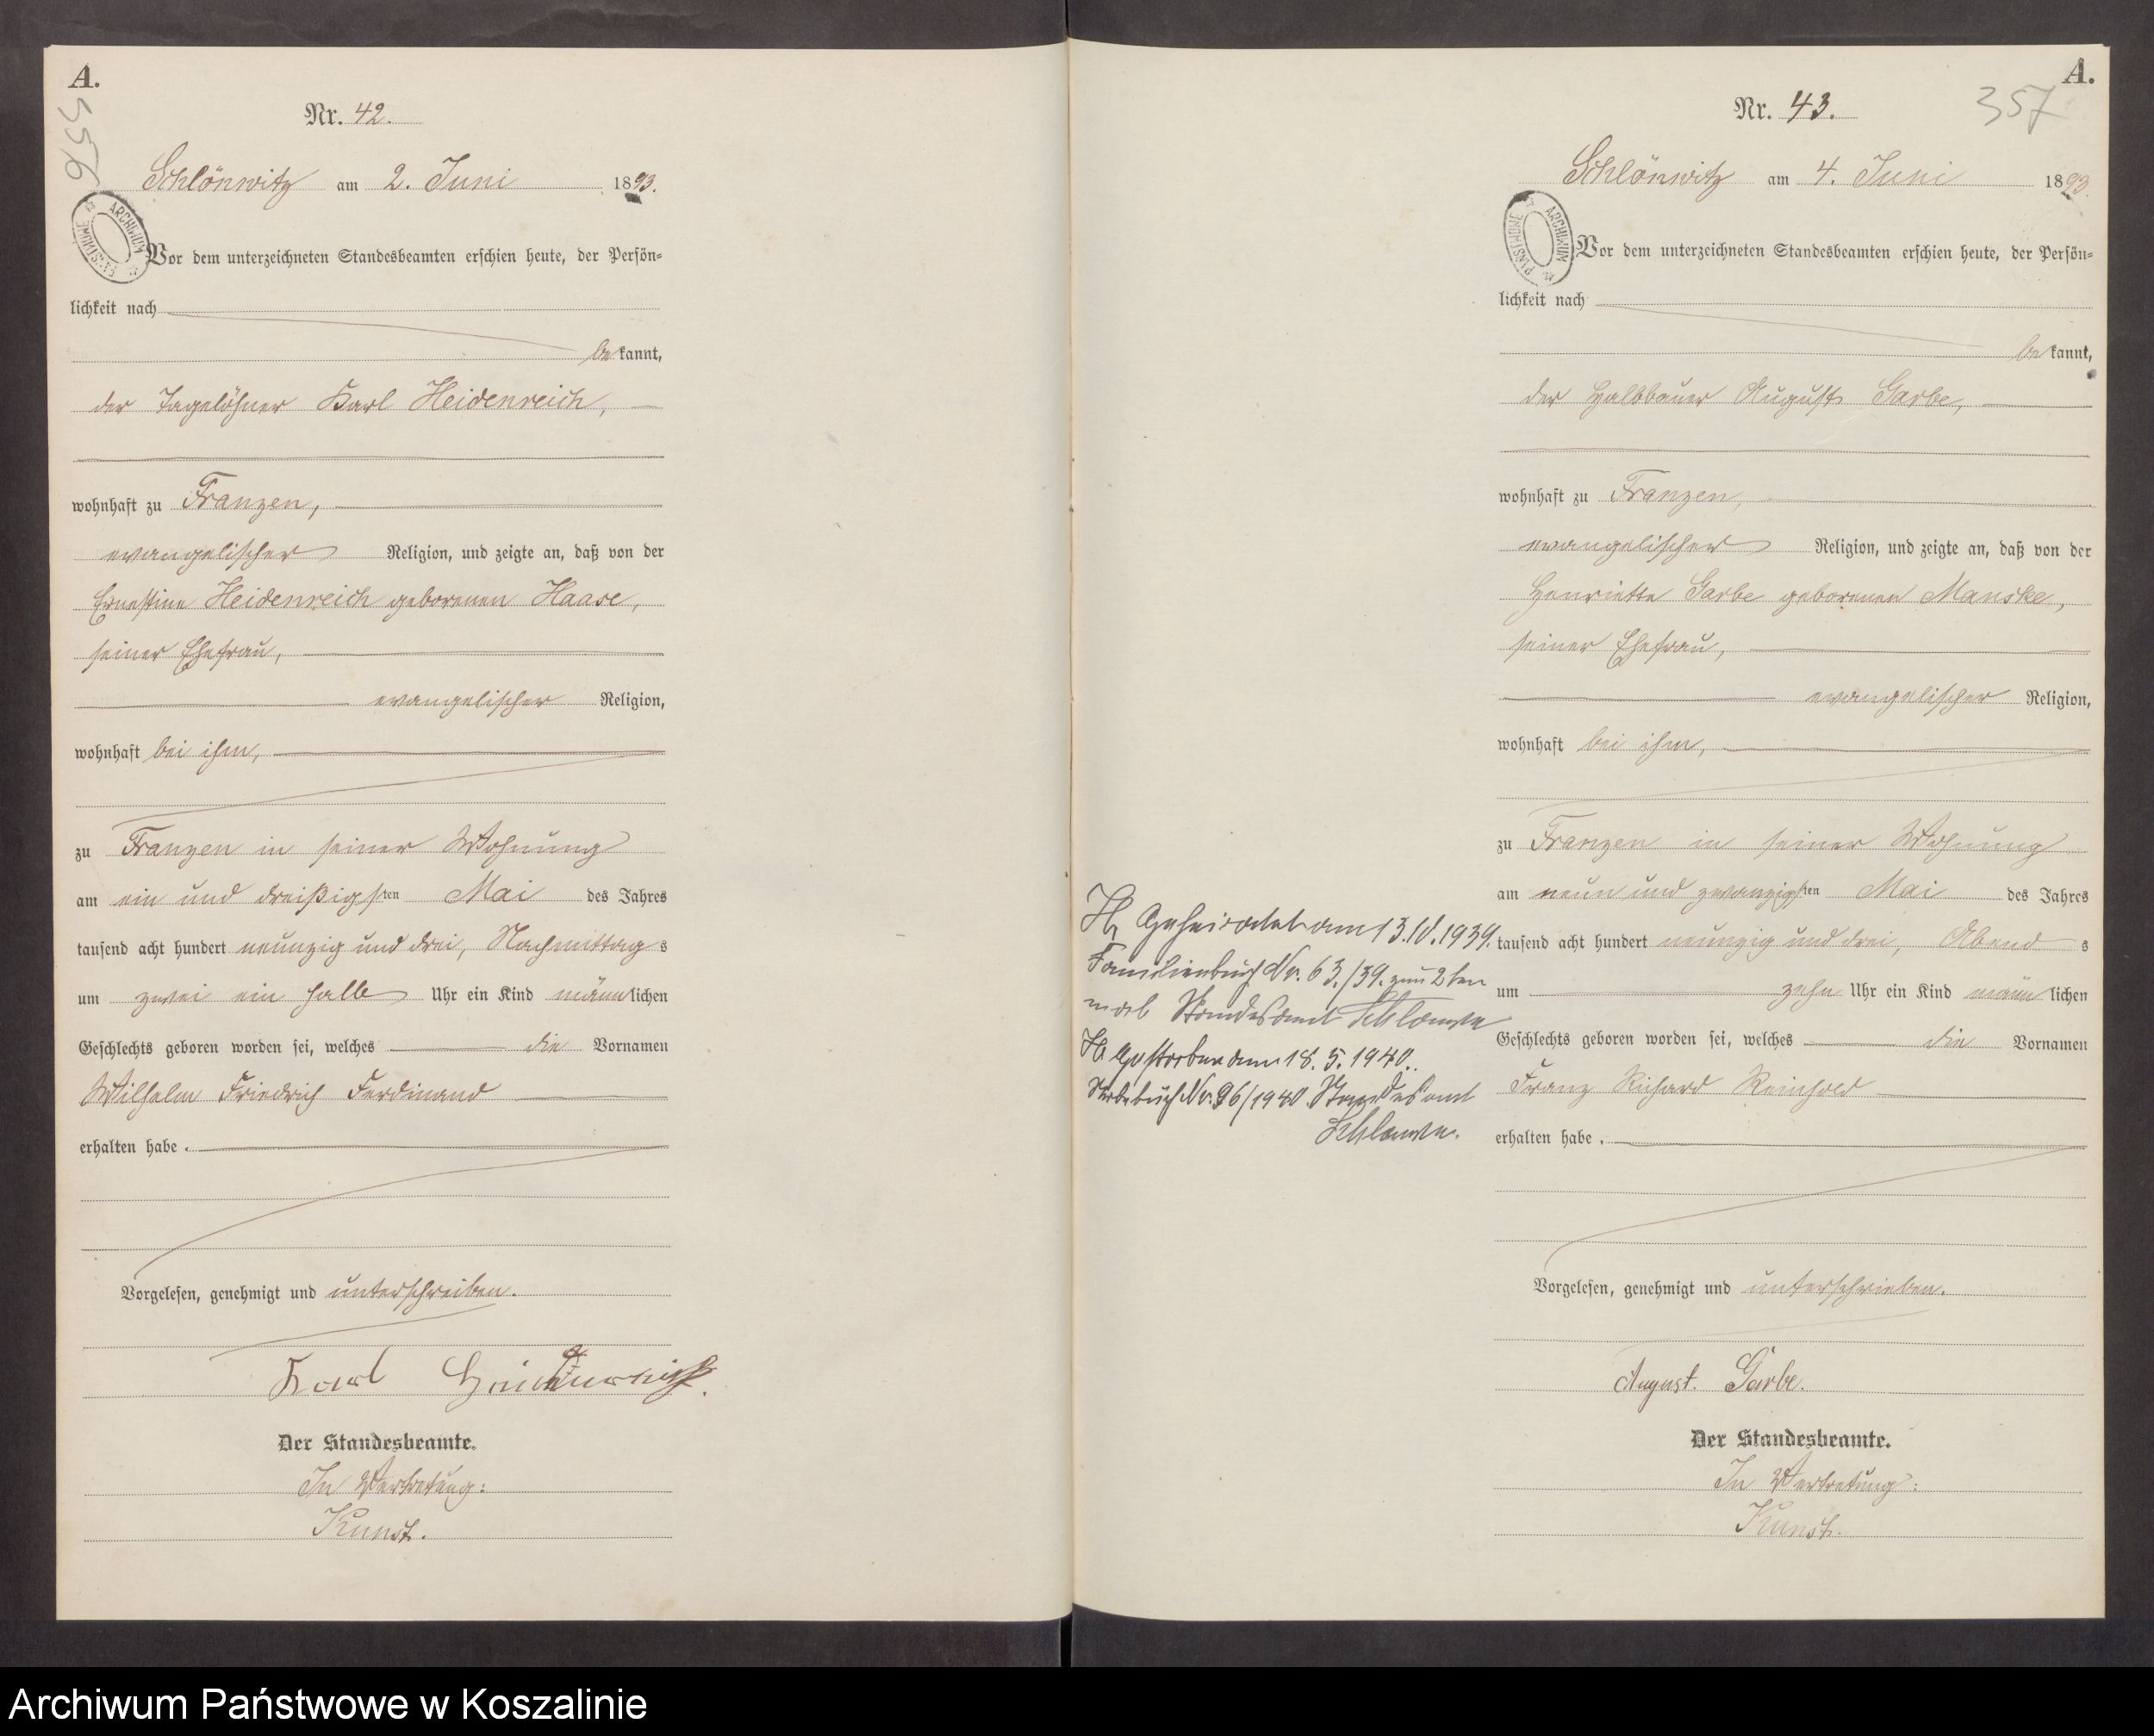 A.
556
Nr. 42.
Schlönwitz am 2. Juni 1893.
ARCHIWUM PAŃSTWOWE
Vor dem unterzeichneten Standesbeamten erschien heute, der Persön=
lichkeit nach
be kannt,
der Tagelöhner Karl Heidenreich,
wohnhaft zu Franzen,
evangelischer Religion, und zeigte an, daß von der
Ernestine Heidenreich geborenen Haase,
seiner Ehefrau,
evangelischer Religion,
wohnhaft bei ihm,
zu Franzen in seiner Wohnung
am ein und dreißigsten Mai des Jahres
tausend acht hundert neunzig und drei, Nachmittags
um zwei ein halb Uhr ein Kind männlichen
Geschlechts geboren worden sei, welches die Vornamen
Wilhelm Friedrich Ferdinand
erhalten habe.
Vorgelesen, genehmigt und unterschreiben.
Karl Heidenreich.
Der Standesbeamte.
In Vertretung:
Kunst.
A.
357
Nr. 43.
Schlönwitz am 4. Juni 1893.
ARCHIWUM PAŃSTWOWE
Vor dem unterzeichneten Standesbeamten erschien heute, der Persön=
lichkeit nach
be kannt,
der Halbbauer August Garbe,
wohnhaft zu Franzen,
evangelischer Religion, und zeigte an, daß von der
Henriette Garbe geborenen Manske,
seiner Ehefrau,
evangelischer Religion,
wohnhaft bei ihm,
zu Franzen in seiner Wohnung
am neun und zwanzigsten Mai des Jahres
tausend acht hundert neunzig und drei, Abends
um zehn Uhr ein Kind männlichen
Geschlechts geboren worden sei, welches die Vornamen
Franz Richard Reinhold
erhalten habe.
Vorgelesen, genehmigt und unterschrieben.
August. Garbe.
Der Standesbeamte.
In Vertretung:
Kunst.
Geheiratet am 13.IV.1939.
Familienbuch Nr. 63./39. zum 2ten
mal Standesamt Schlawe
Gestorben am 18.5.1940.
Sterbebuch Nr. 96/1940 Standesamt
Schlawe.
Archiwum Państwowe w Koszalinie